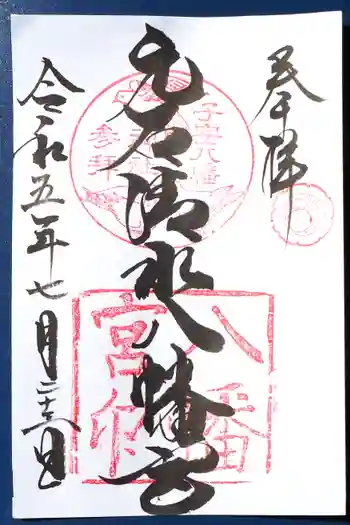 奉拝
元石清水八幡宮
令和五年七月二十六日
子安八幡
参拝
八幡
宮印